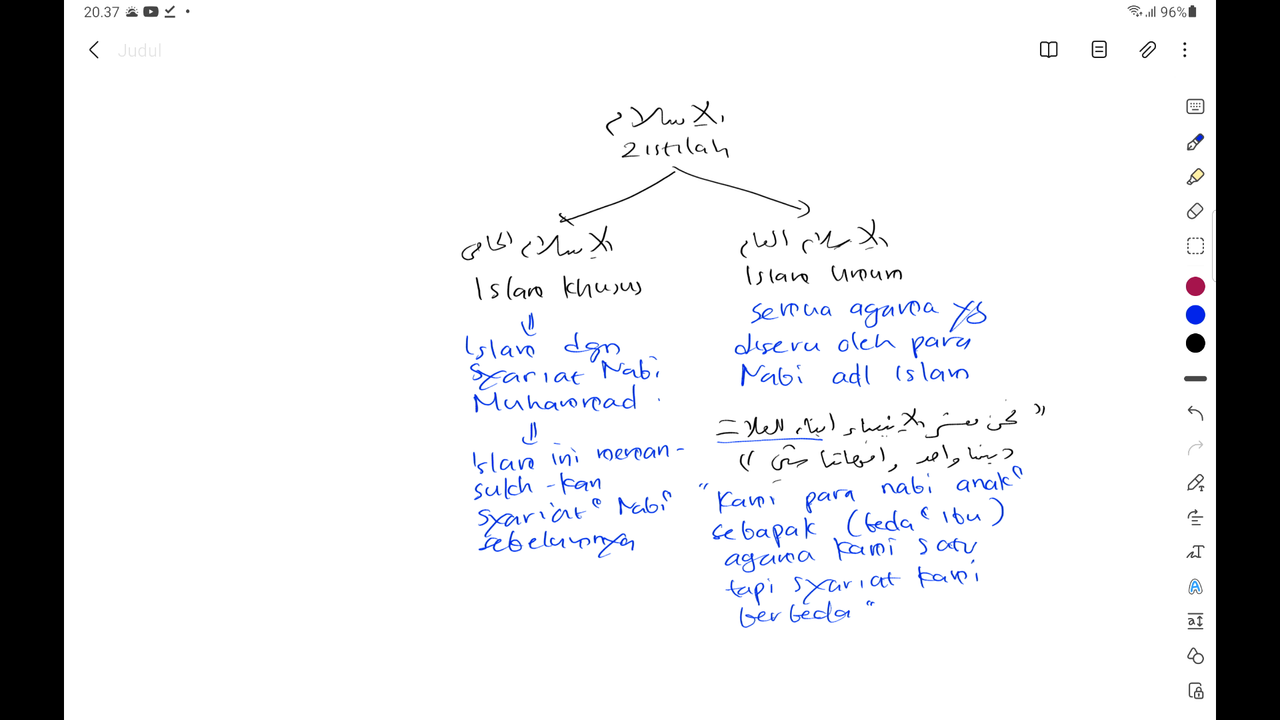 20.37
96%
Judul
الإسلام
2 istilah
الإسلام الخاص
Islam khusus
Islam dgn
syariat Nabi
Muhammad.
Islam ini meman-
sukh-kan
syariat" Nabi"
sebelumnya
الإسلام العام
Islam Umum
semua agama yg
diseru oleh para
Nabi adl Islam
"نحن معشر الأنبياء أبناء العلات
ديننا واحد وأمهاتنا شتى"
"Kami para nabi anak"
sebapak (beda" ibu)
agama kami satu
tapi syariat kami
berbeda"